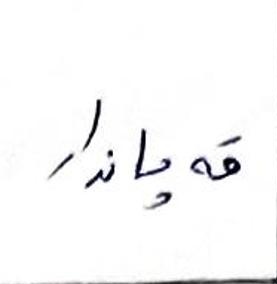 قه پاندار